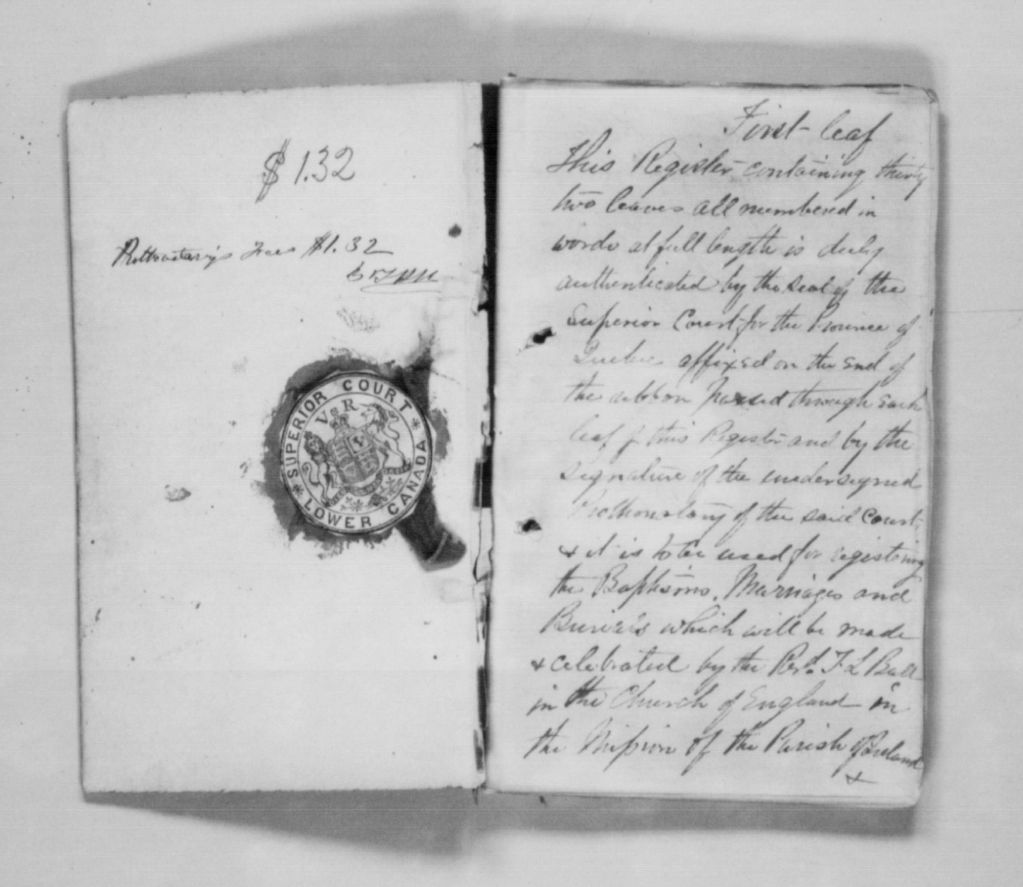 $1.32
Prothonotary's Fees $1.32
SUPERIOR COURT
V R
LOWER CANADA
First leaf
This Register containing thirty
two leaves all numbered in
words at full length is duly
authenticated by the Seal of the
Superior Court for the Province of
Quebec affixed on the end of
the ribbon passed through each
leaf of this Register and by the
signature of the undersigned
Prothonotary of the said Court,
& it is to be used for registering
the Baptisms, Marriages and
Burials which will be made
& celebrated by the Revd. F L Ball
in the Church of England in
the Mission of the Parish of Ireland
&